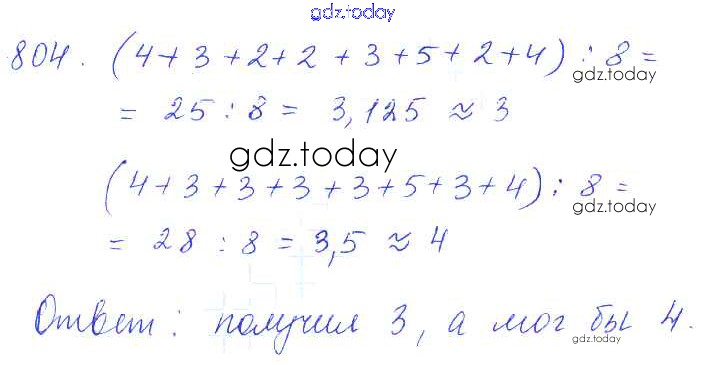 gdz.today
804. (4+3+2+2+3+5+2+4) : 8 =
gdz.today
= 25 : 8 = 3,125 ≈ 3
gdz.today
(4+3+3+3+3+5+3+4) : 8 =
gdz.today
= 28 : 8 = 3,5 ≈ 4
Ответ: получил 3, а мог бы 4.
gdz.today